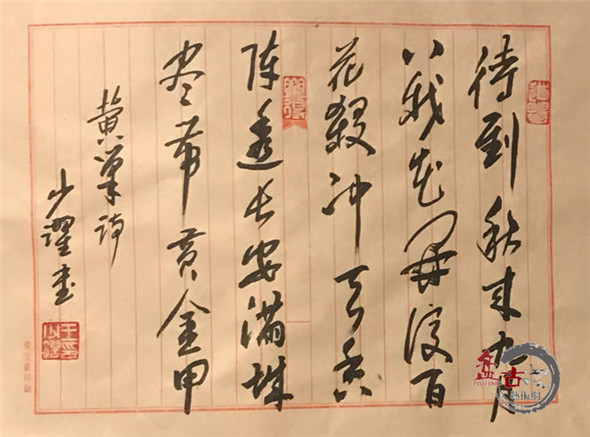 待到秋来九月
八我花开後百
花殺冲天香
阵透长安满城
尽带黄金甲
黄巢诗
少躍書
盘古
藝術網